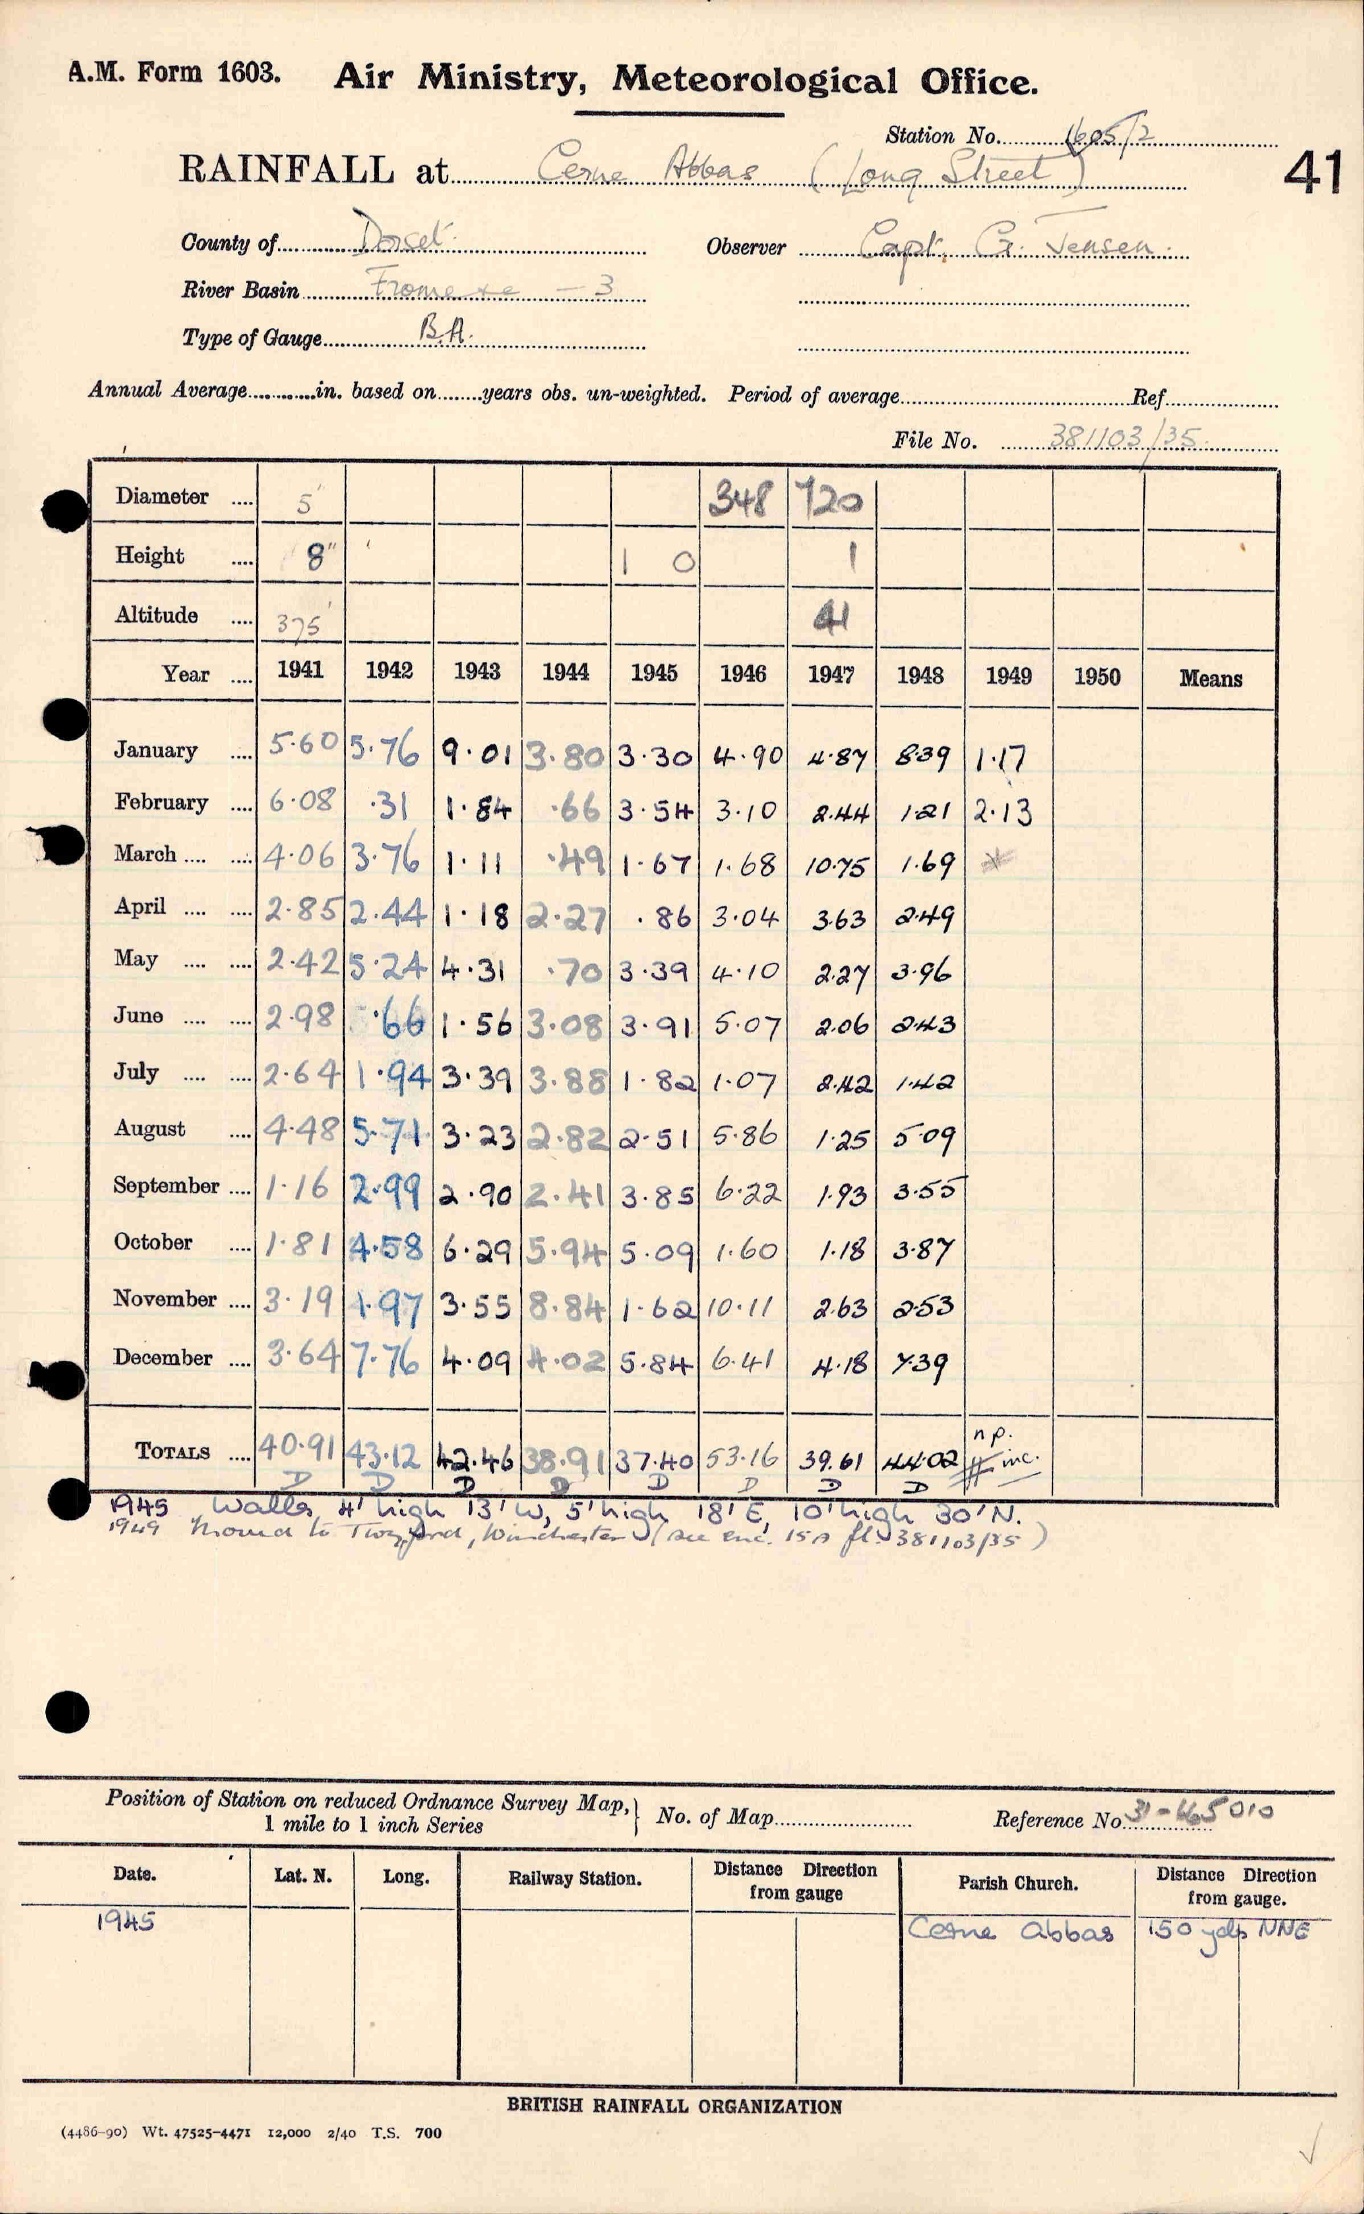 A.M. Form 1603. Air Ministry, Meteorological Office.
Station No. 1605/2
RAINFALL at Cerne Abbas (Long Street) 41
County of Dorset Observer Capt. G. Jensen.
River Basin Frome - 3
Type of Gauge B.A.
Annual Average in. based on years obs. un-weighted. Period of average Ref
File No. 381103/35
Diameter .... 5" 348 720
Height .... 8" 1 0 1
Altitude .... 375' 41
Year .... 1941 1942 1943 1944 1945 1946 1947 1948 1949 1950 Means
January .... 5.60 5.76 9.01 3.80 3.30 4.90 4.87 8.39 1.17
February .... 6.08 .31 1.84 .66 3.54 3.10 2.44 1.21 2.13
March .... .... 4.06 3.76 1.11 .49 1.67 1.68 10.75 1.69
April .... .... 2.85 2.44 1.18 2.27 .86 3.04 3.63 2.49
May .... .... 2.42 5.24 4.31 .70 3.39 4.10 2.27 3.96
June .... .... 2.98 .66 1.56 3.08 3.91 5.07 2.06 2.43
July .... .... 2.64 1.94 3.39 3.88 1.82 1.07 2.42 1.42
August .... 4.48 5.71 3.23 2.82 2.51 5.86 1.25 5.09
September .... 1.16 2.99 2.90 2.41 3.85 6.22 1.93 3.55
October .... 1.81 4.58 6.29 5.94 5.09 1.60 1.18 3.87
November .... 3.19 1.97 3.55 8.84 1.62 10.11 2.63 2.53
December .... 3.64 7.76 4.09 4.02 5.84 6.41 4.18 7.39
np.
TOTALS .... 40.91 43.12 42.46 38.91 37.40 53.16 39.61 44.02 inc.
D D D D D D D D
1945 Walls, 4' high 13' W, 5' high 18' E, 10' high 30' N.
1949 Moved to Twyford, Winchester (see enc. 15A fl. 381103/35)
Position of Station on reduced Ordnance Survey Map, 1 mile to 1 inch Series } No. of Map Reference No. 31-665010
Date. Lat. N. Long. Railway Station. Distance Direction from gauge Parish Church. Distance Direction from gauge.
1945 Cerne Abbas 150 yds NNE
BRITISH RAINFALL ORGANIZATION
(4486-90) Wt. 47525-4471 12,000 2/40 T.S. 700